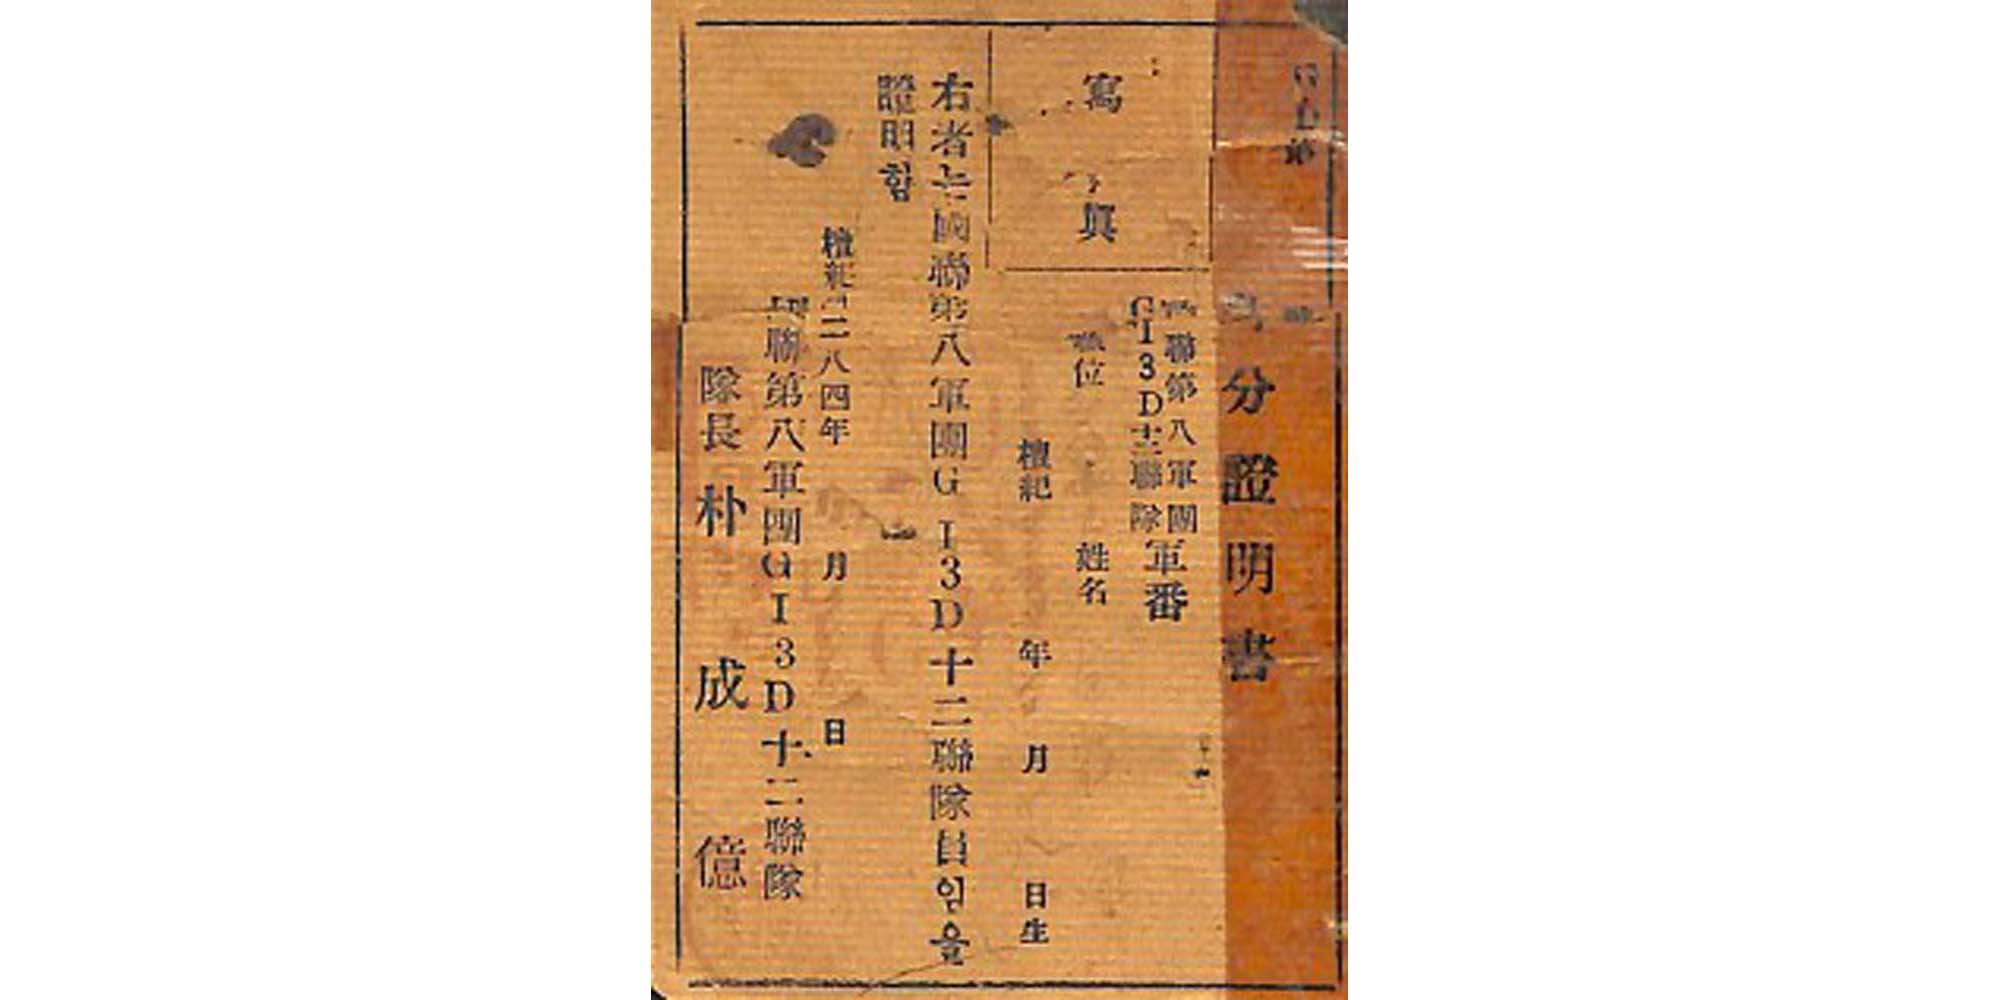 分證明書
聯第八軍團
GI3D十二聯隊
軍番
寫眞
位 姓名
檀紀 年 月 日生
右者는國聯第八軍團GI3D十二聯隊員임을
證明함
檀紀四二八四年 月 日
國聯第八軍團GI3D十二聯隊
隊長 朴成億